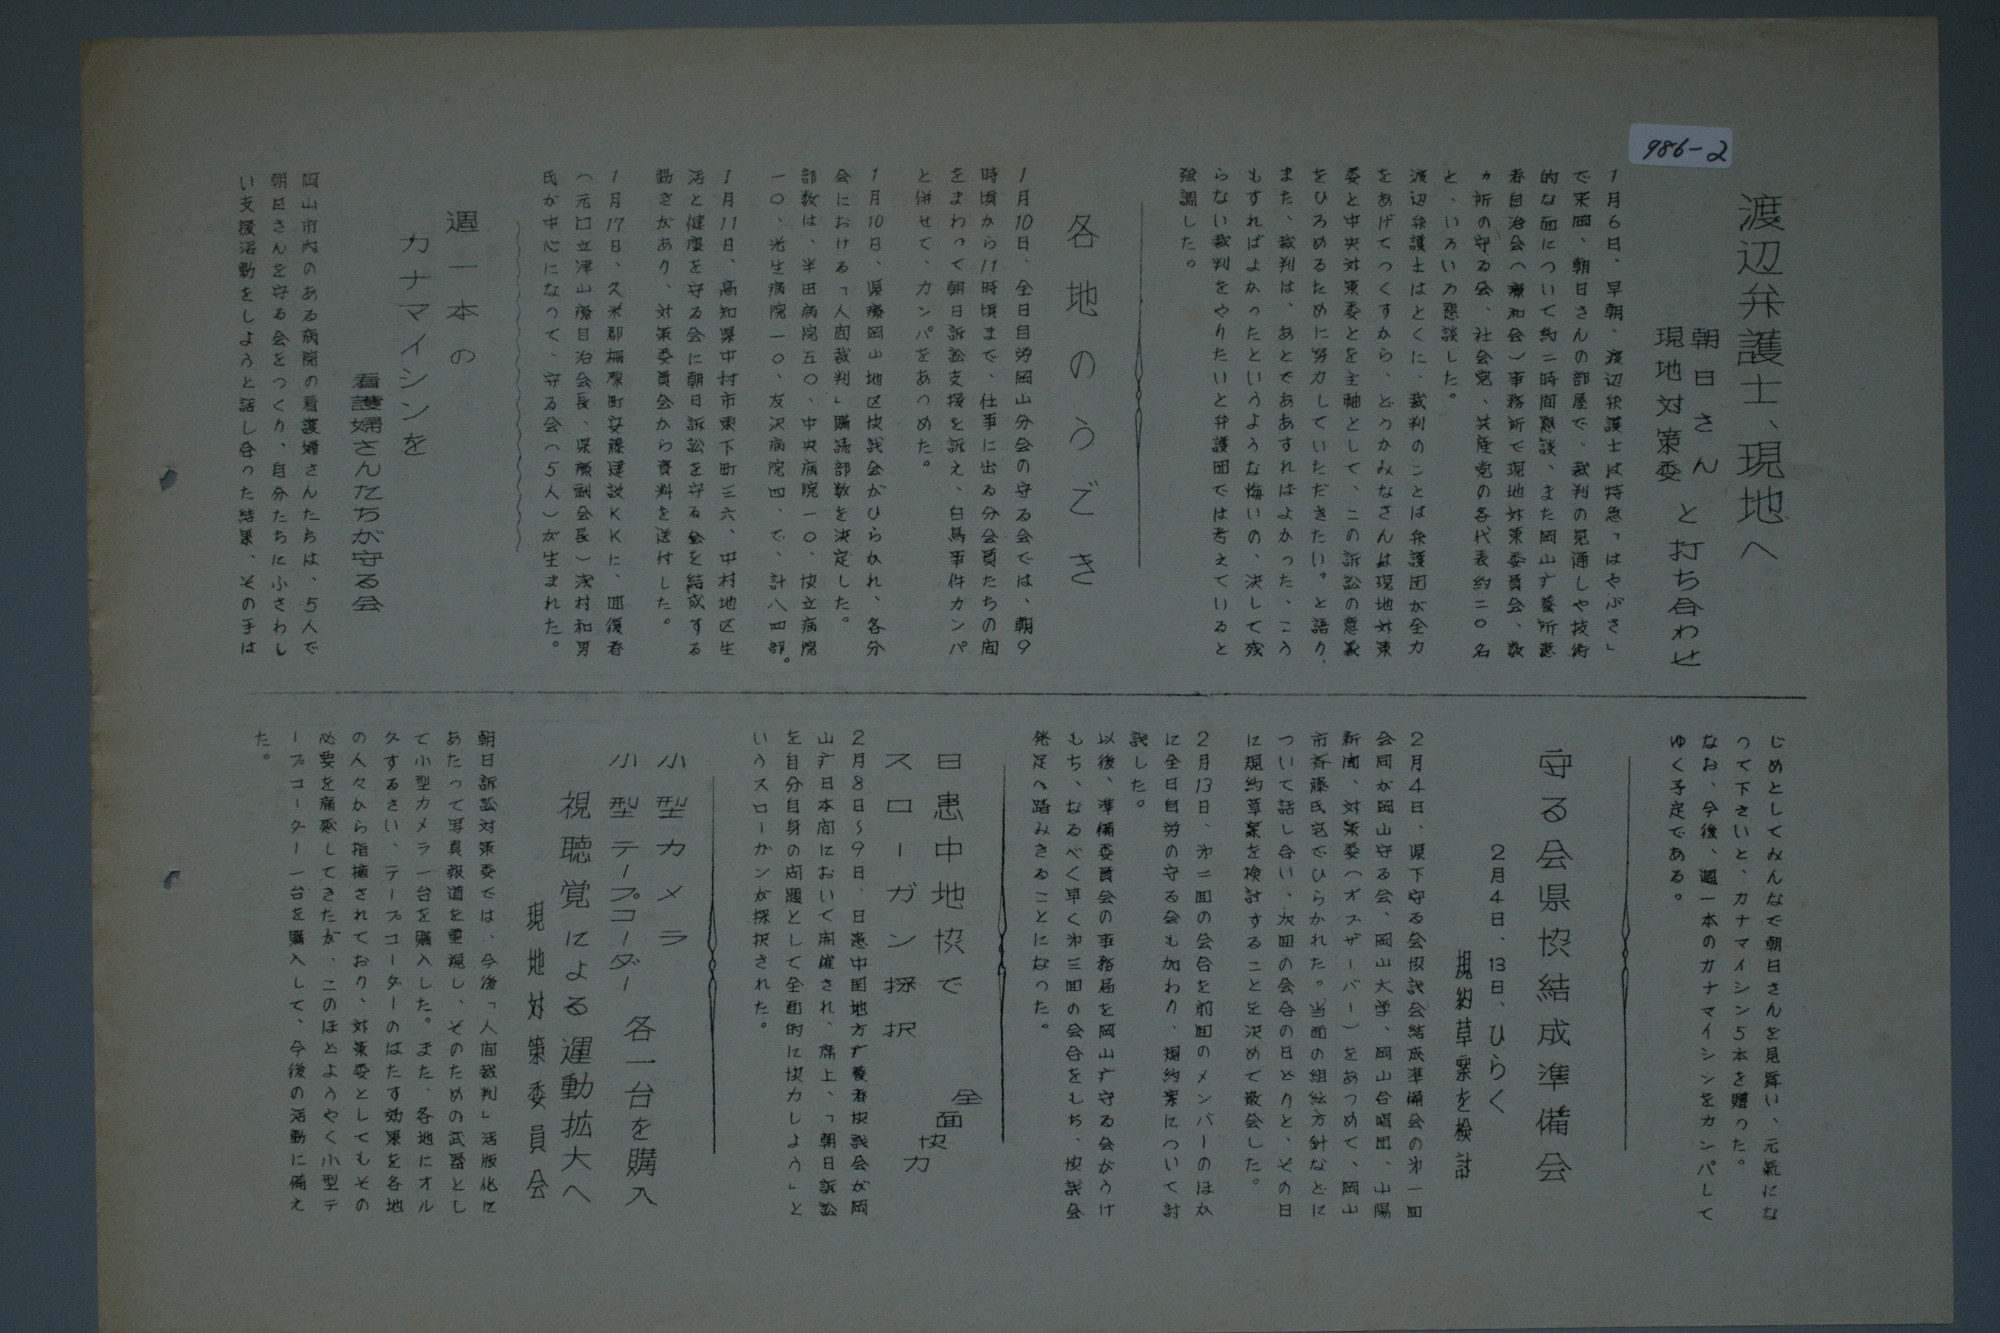 986-2
渡辺弁護士、現地へ
朝日さん
現地対策委
と打ち合わせ
1月6日、早朝、渡辺弁護士は特急「はやぶさ」
で来岡、朝日さんの部屋で、裁判の見通しや技術
的な面について約二時間懇談、また岡山疒養所患
者自治会（療和会）事務所で現地対策委員会、数
ヵ所の守る会、社会党、共産党の各代表約二〇名
と、いろいろ懇談した。
渡辺弁護士はとくに、裁判のことは弁護団が全力
をあげてつくすから、どうかみなさんは現地対策
委と中央対策委とを主軸として、この訴訟の意義
をひろめるために努力していただきたい。と語り、
また、裁判は、あとでああすればよかった、こう
もすればよかったというような悔いの、決して残
らない裁判をやりたいと弁護団では考えていると
強調した。
各地のうごき
1月10日、全日自労岡山分会の守る会では、朝9
時頃から11時頃まで、仕事に出る分会員たちの間
をまわって朝日訴訟支援を訴え、白鳥事件カンパ
と併せて、カンパをあつめた。
1月10日、県療岡山地区協議会がひらかれ、各分
会における「人間裁判」購読部数を決定した。
部数は、半田病院五〇、中央病院一〇、協立病院
一〇、光生病院一〇、友沢病院四、で、計八四部。
1月11日、高知県中村市東下町三六、中村地区生
活と健康を守る会に朝日訴訟を守る会を結成する
動きがあり、対策委員会から資料を送付した。
1月17日、久米郡柵原町安藤建設KKに、回復者
（元国立津山療自治会長、県療副会長）浅村和男
氏が中心になって、守る会（5人）が生まれた。
週一本の
カナマイシンを
看護婦さんたちが守る会
岡山市内のある病院の看護婦さんたちは、5人で
朝日さんを守る会をつくり、自分たちにふさわし
い支援活動をしようと話し合った結果、その手は
じめとしてみんなで朝日さんを見舞い、元氣にな
って下さいと、カナマイシン5本を贈った。
なお、今後、週一本のカナマイシンをカンパして
ゆく予定である。
守る会県協結成準備会
2月4日、13日、ひらく
規約草案を検討
2月4日、県下守る会協議会結成準備会の㐧一回
会同が岡山守る会、岡山大学、岡山合唱団、山陽
新聞、対策委（オブザーバー）をあつめて、岡山
市斉藤氏宅でひらかれた。当面の組織方針などに
ついて話し合い、次回の会合の日どりと、その日
に規約草案を検討することを決めて散会した。
2月13日、㐧二回の会合を前回のメンバーのほか
に全日自労の守る会も加わり、規約案について討
議した。
以後、準備委員会の事務局を岡山疒守る会がうけ
もち、なるべく早く㐧三回の会合をもち、協議会
発足へ踏みきることになった。
日患中地協で
スローガン採択
全面協力
2月8日～9日、日患中国地方疒養者協議会が岡
山疒日本間において開催され、席上、「朝日訴訟
を自分自身の問題として全面的に協力しよう」と
いうスローガンが採択された。
小型カメラ
小型テープコーダー
各一台を購入
視聴覚による運動拡大へ
現地対策委員会
朝日訴訟対策委では、今後「人間裁判」活版化に
あたって写真報道を重視し、そのための武器とし
て小型カメラ一台を購入した。また、各地にオル
グするさい、テープコーダーのはたす効果を各地
の人々から指摘されており、対策委としてもその
必要を痛感してきたが、このほどようやく小型テ
ープコーダー一台を購入して、今後の活動に備え
た。